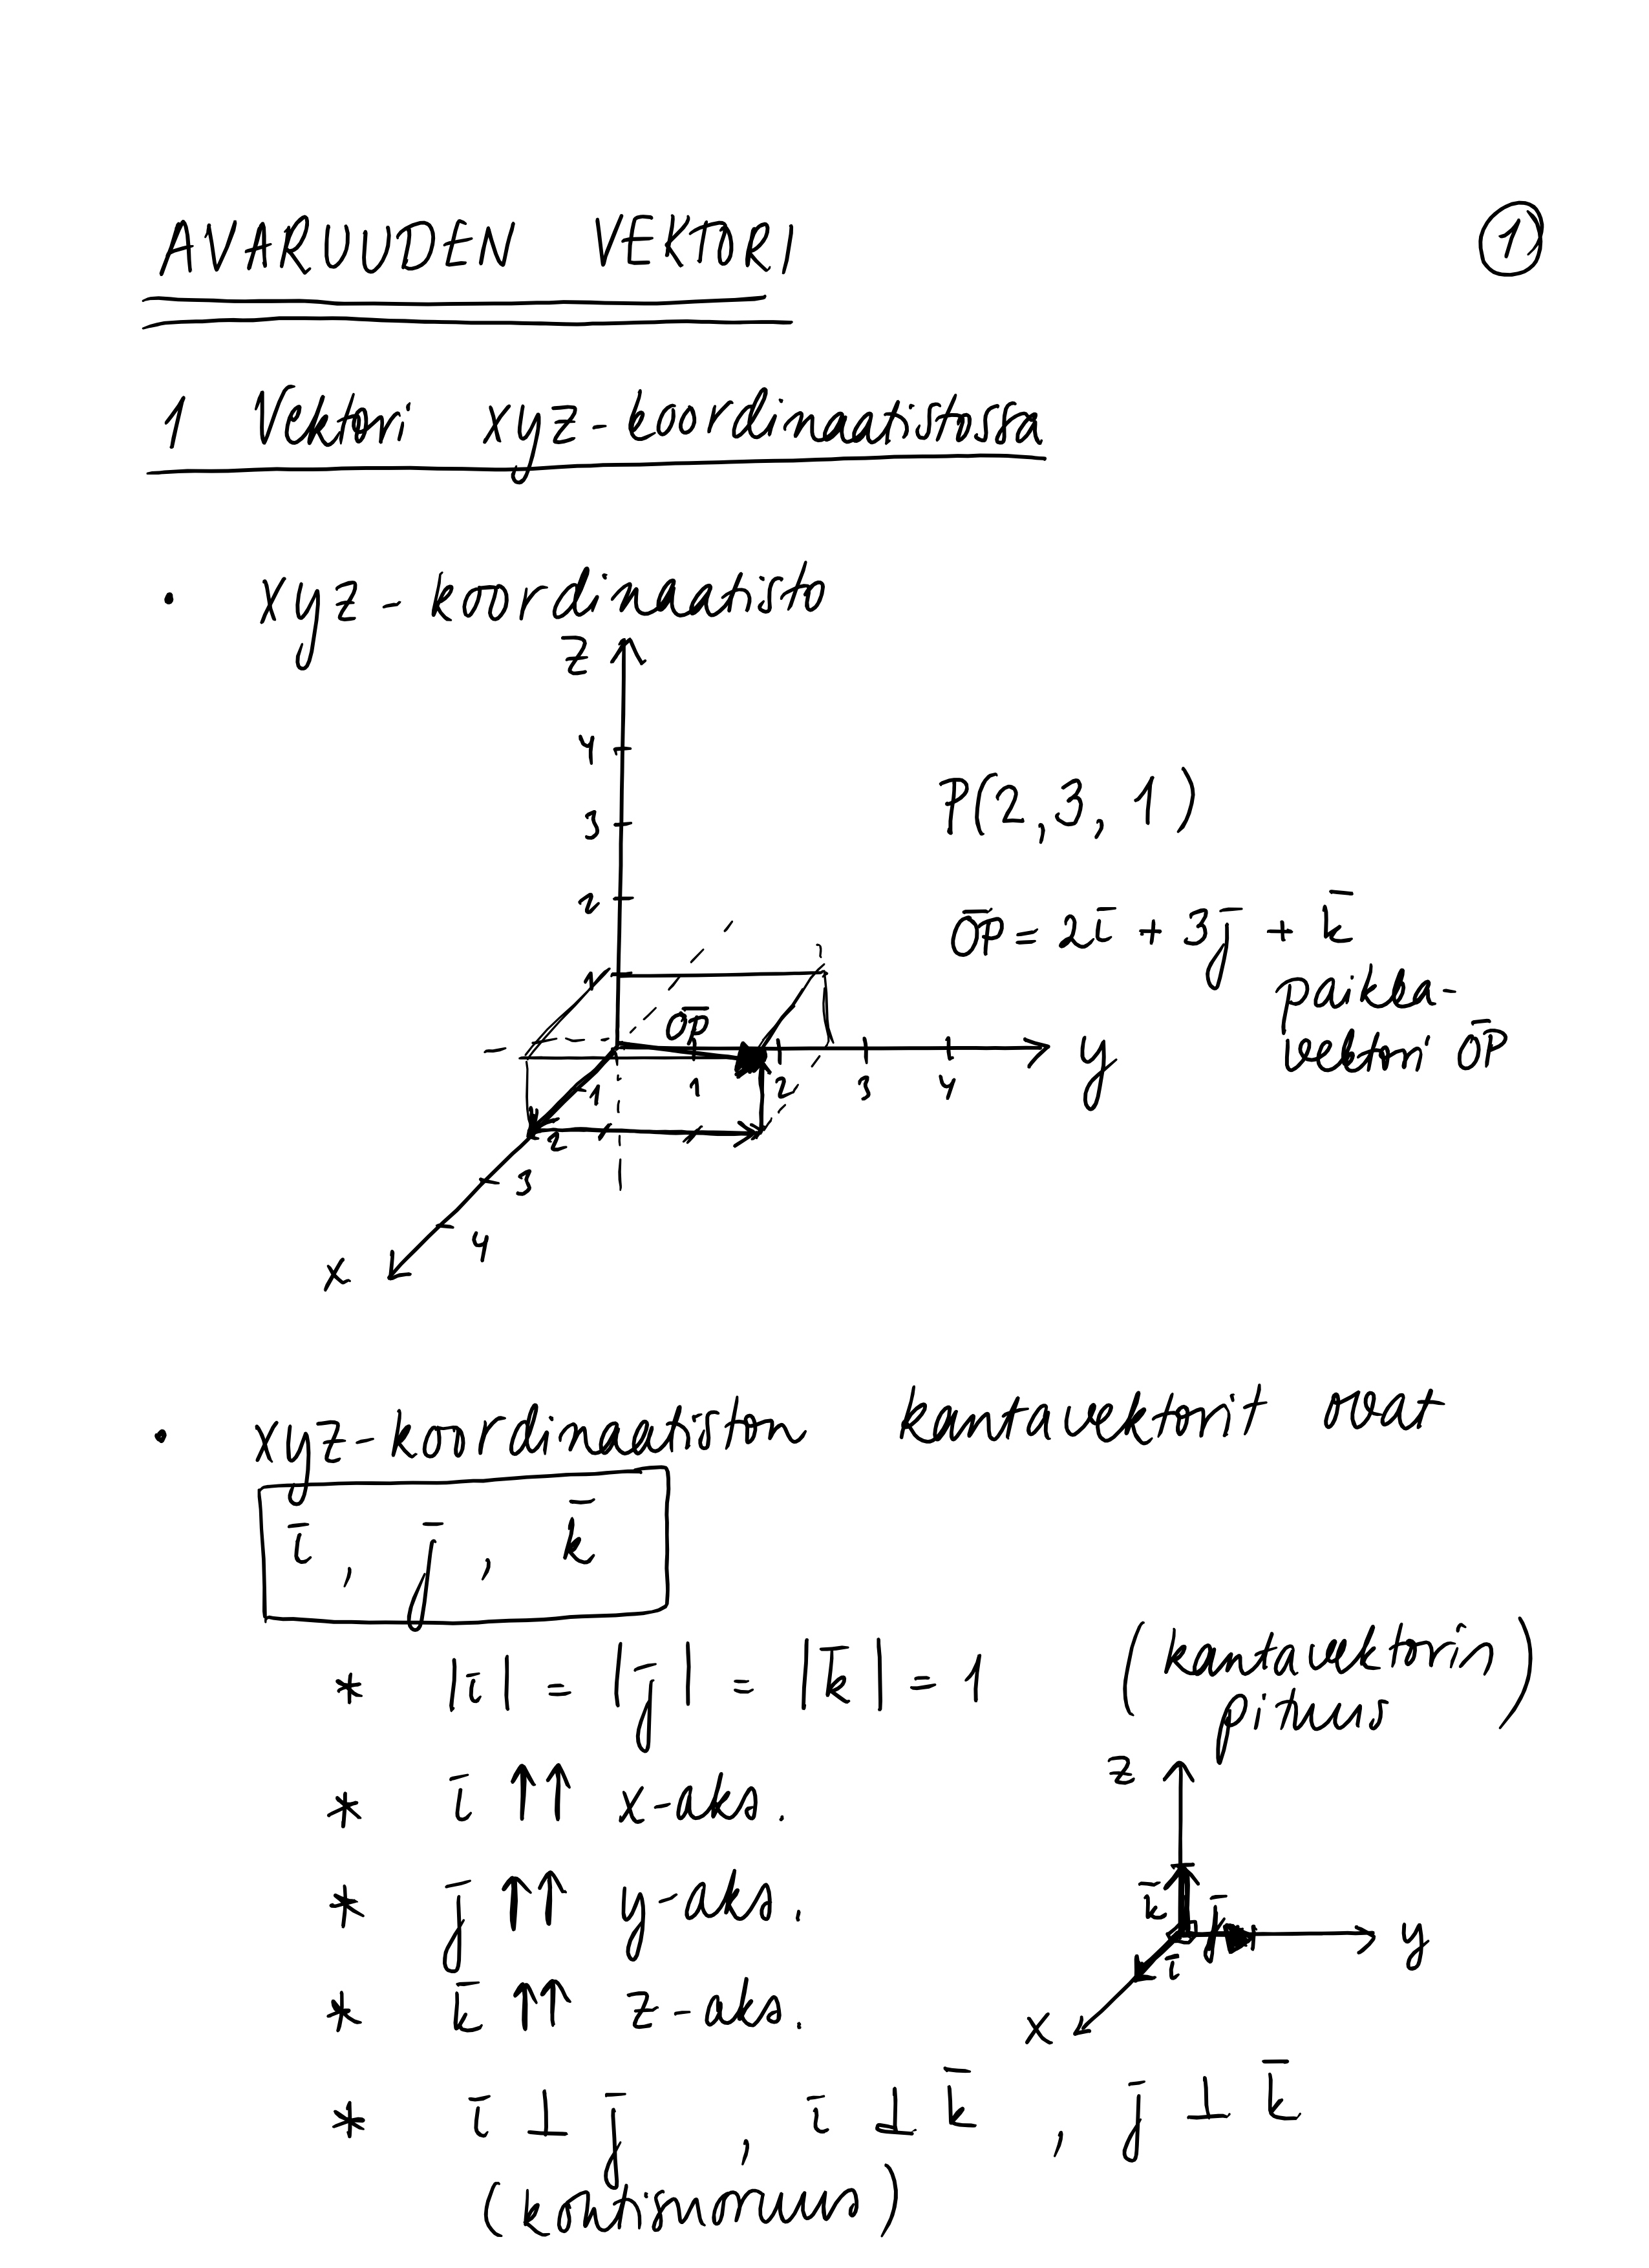 AVARUUDEN VEKTORI
1
1 Vektori xyz-koordinaatistossa
• xyz-koordinaatisto
z
4
3
2
1
P(2,3,1)
O̅P̅ = 2i̅ + 3j̅ + k̅
paikka-
vektori O̅P̅
O̅P̅
1 2 3 4 y
1
2
3
4
x
• xyz-koordinaatiston kantavektorit ovat
i̅ , j̅ , k̅
* |i̅| = |j̅| = |k̅| = 1 (kantavektorin
pituus)
* i̅ ↑↑ x-aks.
* j̅ ↑↑ y-aks.
* k̅ ↑↑ z-aks.
z
k̅ j̅ y
i̅
x
* i̅ ⊥ j̅ , i̅ ⊥ k̅ , j̅ ⊥ k̅
(kohtisuoruus)